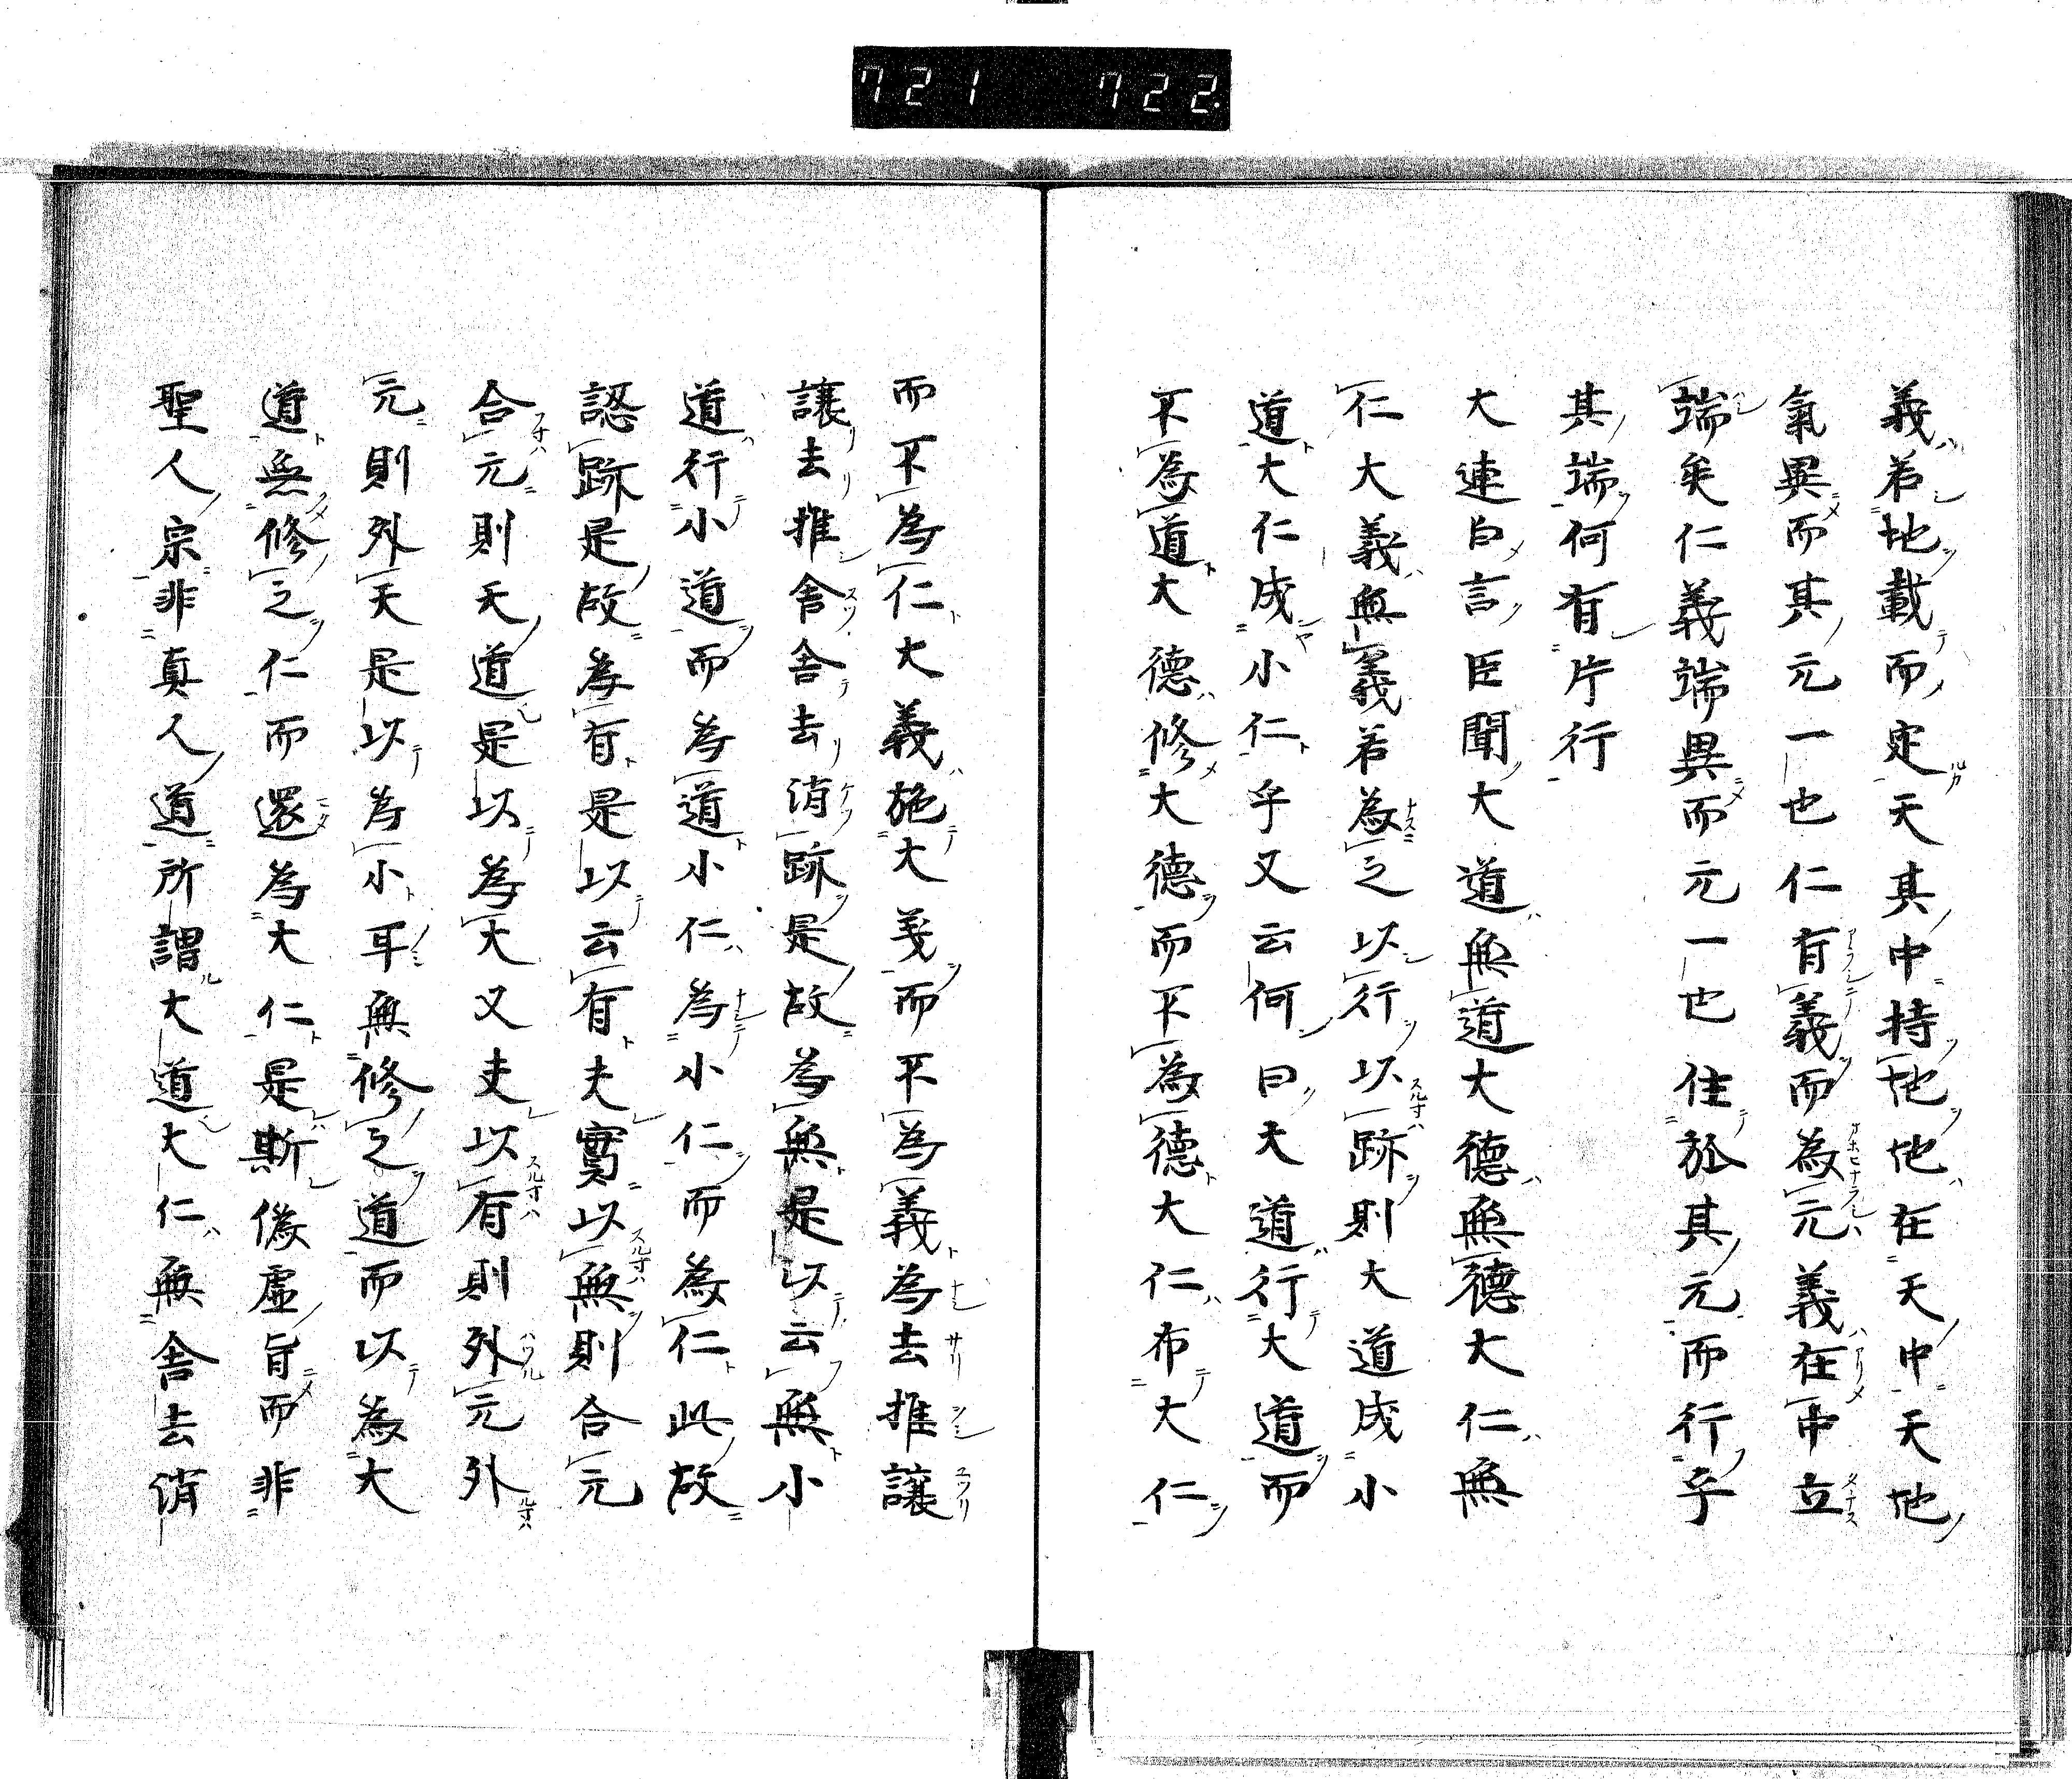 721 722
義若地載而定天其中持地地在天中天地
氣異而其元一也仁有義而為元義在中立
端矣仁義端異而元一也住於其元而行乎
其端何有片行
大連白言臣聞大道無道大德無德大仁無
仁大義無義若為之以行以跡則大道成小
道大仁成小仁乎又云何曰大道行大道而
不為道大德修大德而不為德大仁布大仁
而不為仁大義施大義而不為義為去推讓
讓去推舍舍去消跡是故為無是以云無小
道行小道而為道小仁為小仁而為仁此故
認跡是故為有是以云有夫實以無則合元
合元則天道是以為大又夫以有則外元外
元則外天是以為小耳無修之道而以為大
道無修之仁而還為大仁是斯偽虛旨而非
聖人宗非真人道所謂大道大仁無舍去消